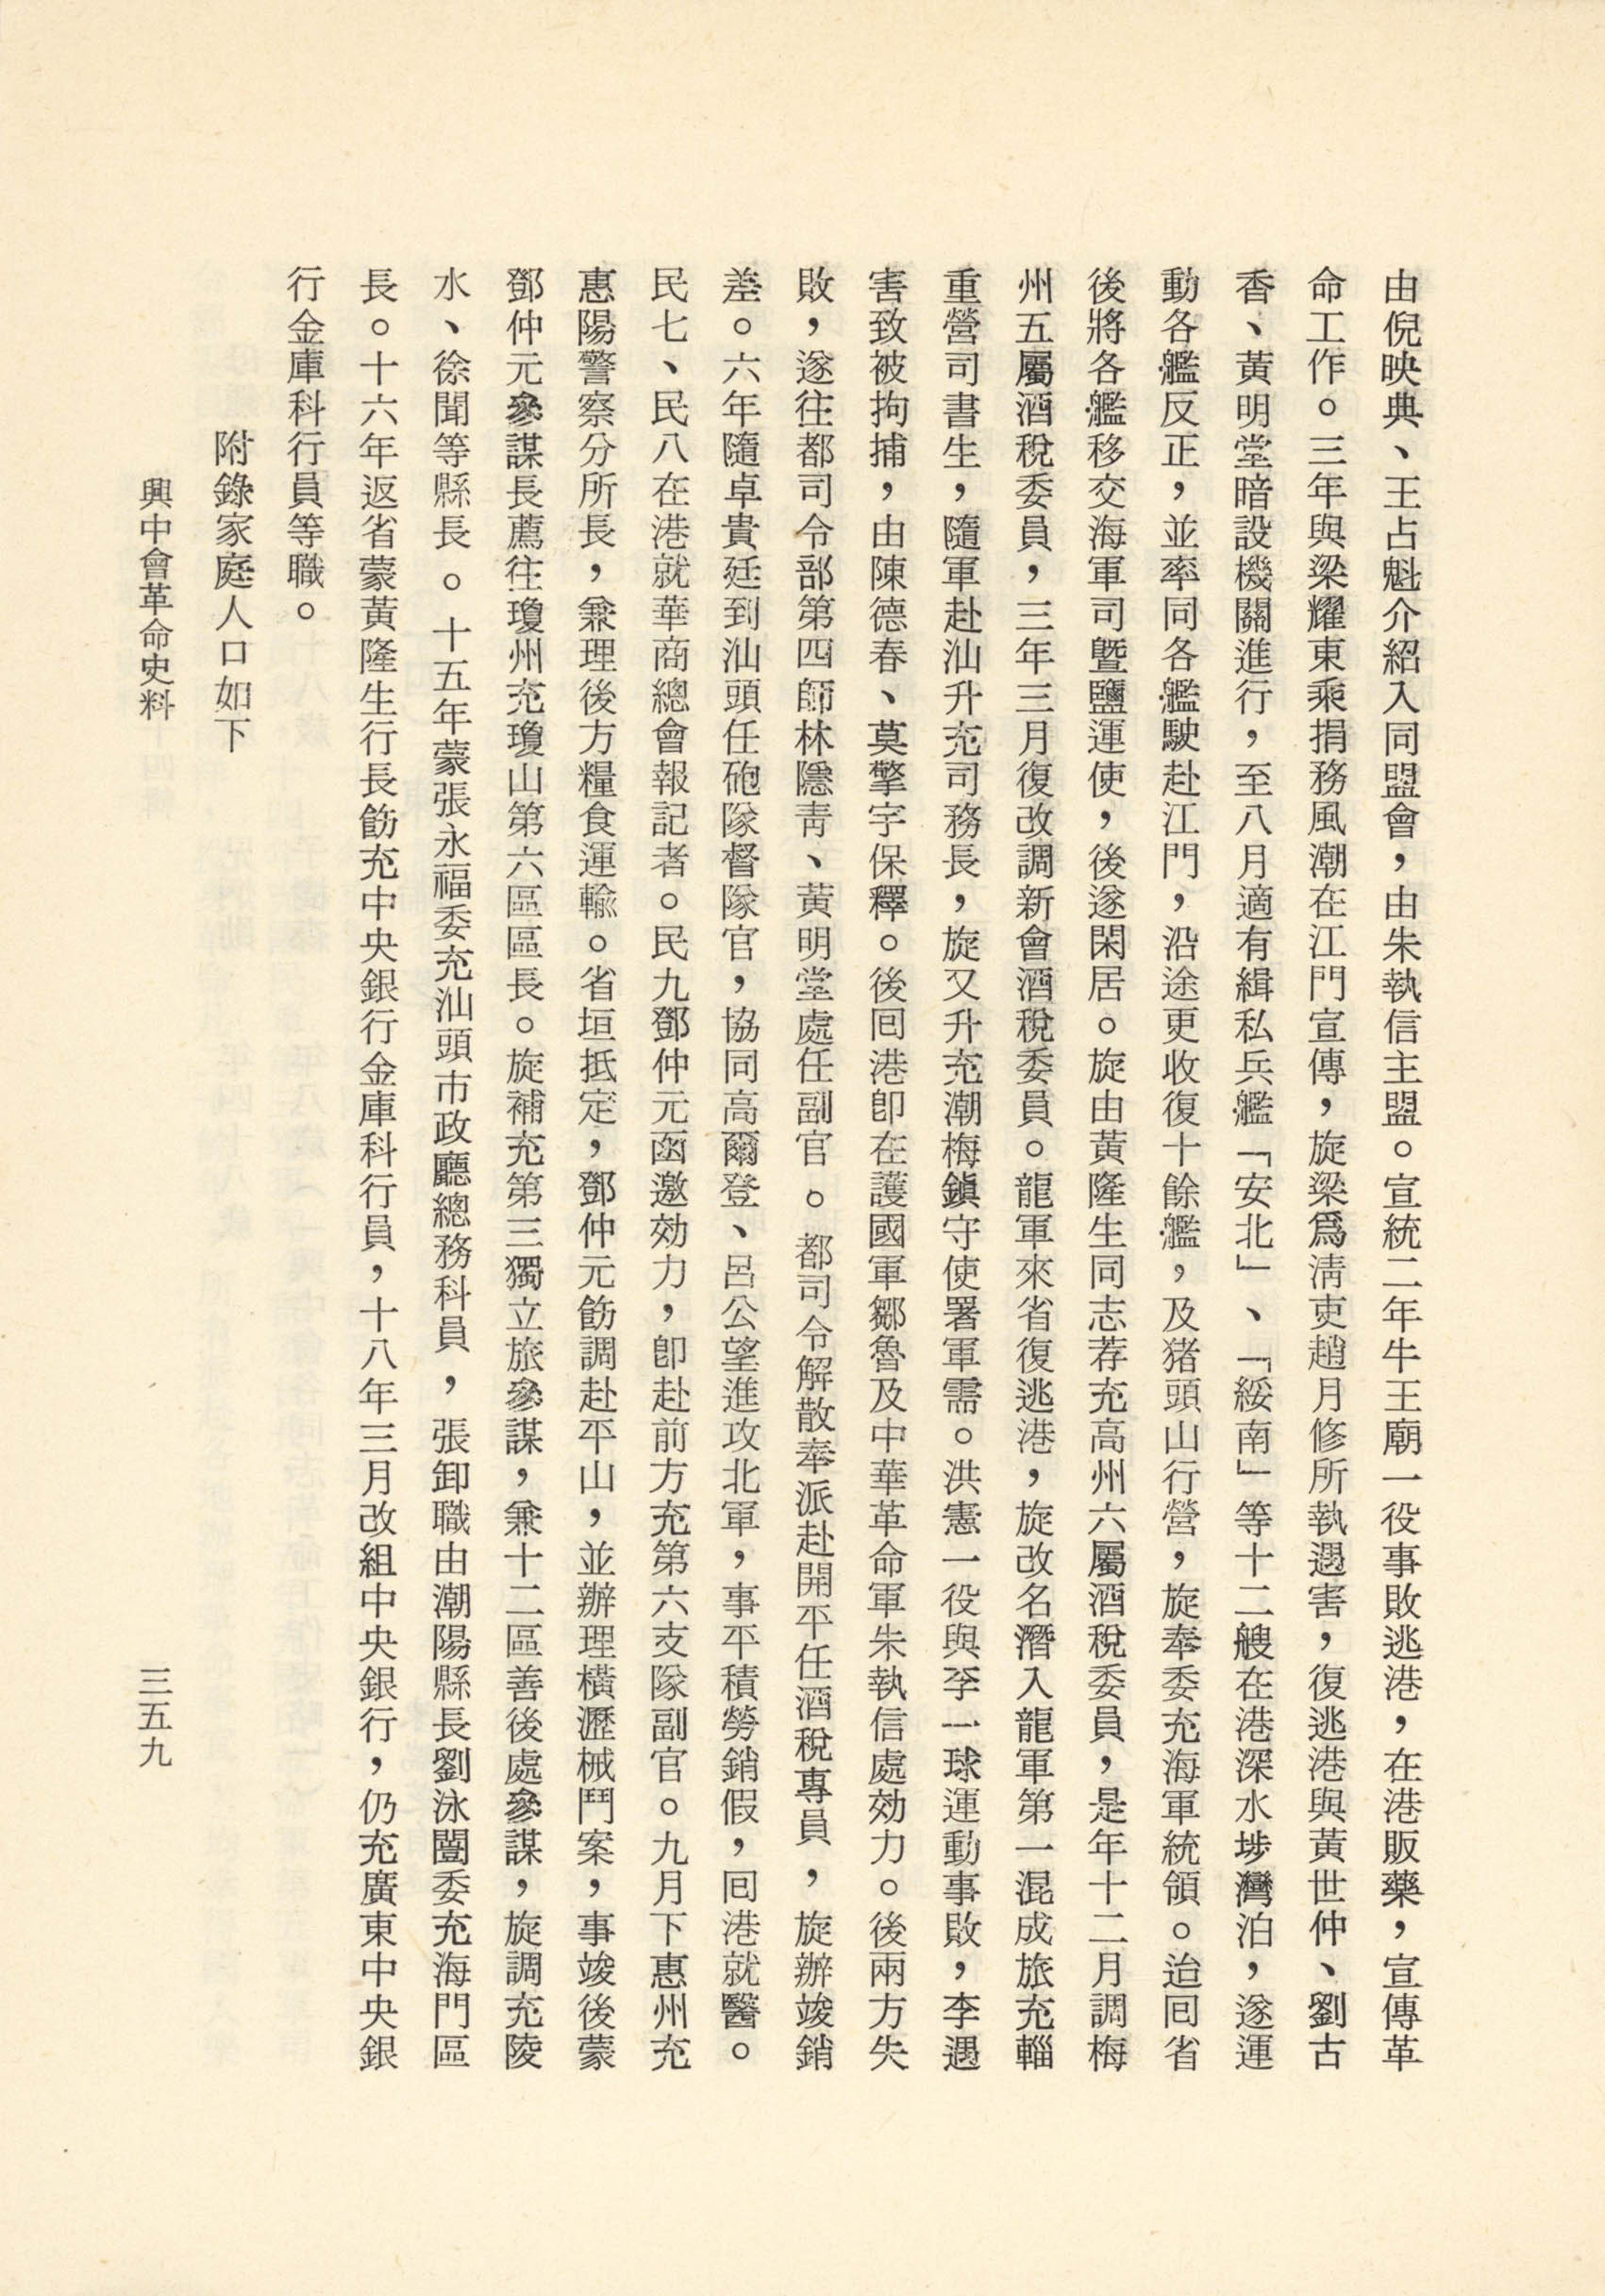 由倪映典、王占魁介紹入同盟會，由朱執信主盟。宣統二年牛王廟一役事敗逃港，在港販藥，宣傳革
命工作。三年與梁耀東乘捐務風潮在江門宣傳，旋梁爲淸吏趙月修所執遇害，復逃港與黃世仲、劉古
香、黃明堂暗設機關進行，至八月適有緝私兵艦「安北」、「綏南」等十二艘在港深水埗灣泊，遂運
動各艦反正，並率同各艦駛赴江門，沿途更收復十餘艦，及猪頭山行營，旋奉委充海軍統領。迨囘省
後將各艦移交海軍司曁鹽運使，後遂閑居。旋由黃隆生同志荐充高州六屬酒稅委員，是年十二月調梅
州五屬酒稅委員，三年三月復改調新會酒稅委員。龍軍來省復逃港，旋改名潛入龍軍第一混成旅充輜
重營司書生，隨軍赴汕升充司務長，旋又升充潮梅鎭守使署軍需。洪憲一役與李一球運動事敗，李遇
害致被拘捕，由陳德春、莫擎宇保釋。後囘港卽在護國軍鄒魯及中華革命軍朱執信處効力。後兩方失
敗，遂往都司令部第四師林隱靑、黃明堂處任副官。都司令解散奉派赴開平任酒稅專員，旋辦竣銷
差。六年隨卓貴廷到汕頭任砲隊督隊官，協同高爾登、呂公望進攻北軍，事平積勞銷假，囘港就醫。
民七、民八在港就華商總會報記者。民九鄧仲元函邀効力，卽赴前方充第六支隊副官。九月下惠州充
惠陽警察分所長，兼理後方糧食運輸。省垣抵定，鄧仲元飭調赴平山，並辦理橫瀝械鬥案，事竣後蒙
鄧仲元參謀長薦往瓊州充瓊山第六區區長。旋補充第三獨立旅參謀，兼十二區善後處參謀，旋調充陵
水、徐聞等縣長。十五年蒙張永福委充汕頭市政廳總務科員，張卸職由潮陽縣長劉泳闓委充海門區
長。十六年返省蒙黃隆生行長飭充中央銀行金庫科行員，十八年三月改組中央銀行，仍充廣東中央銀
行金庫科行員等職。
附錄家庭人口如下
興中會革命史料
三五九